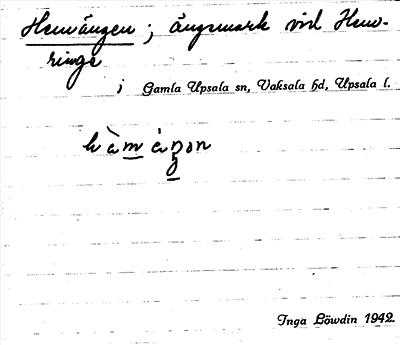 Hemängen ; ängsmark vid Hem-
ringe
; Gamla Upsala sn, Vaksala hd, Upsala l.
Inga Löwdin 1942.